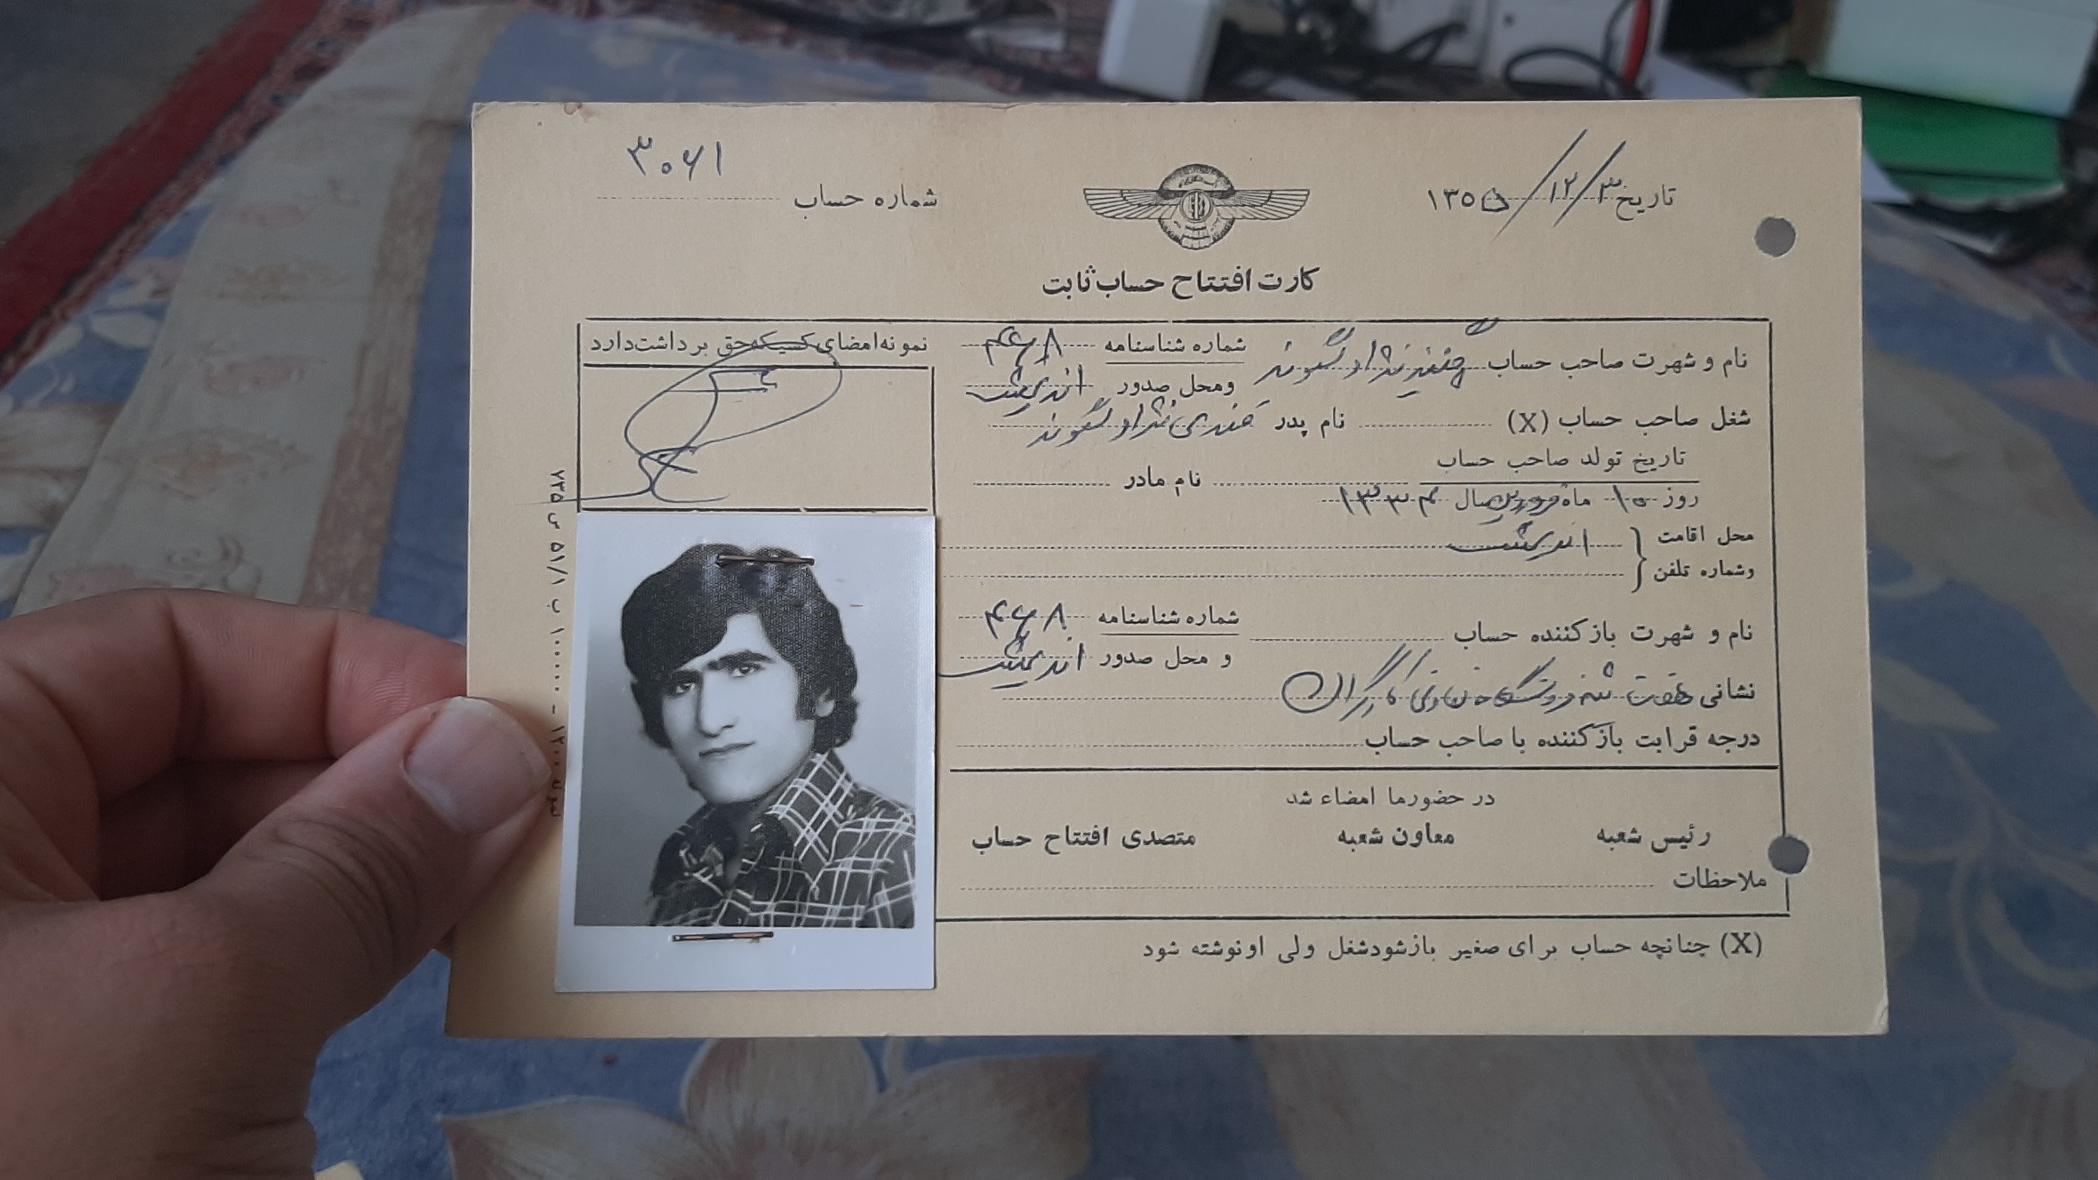 تاریخ ۱۳۵۵/۱۲/۳
شماره حساب ۳۰۶۱
کارت افتتاح حساب ثابت
نام و شهرت صاحب حساب لگوند
شماره شناسنامه ۴۶۸
ومحل صدور اندیمشک
شغل صاحب حساب (X)
نام پدر لگوند
تاریخ تولد صاحب حساب
روز ۱۵ ماه فروردین سال ۱۳۳۴
نام مادر
محل اقامت اندیمشک
وشماره تلفن
نام و شهرت بازکننده حساب
شماره شناسنامه ۴۶۸
و محل صدور اندیمشک
نشانی هفت تپه فروشگاه تعاونی کارگران
درجه قرابت بازکننده با صاحب حساب
در حضورما امضاء شد
رئیس شعبه
معاون شعبه
متصدی افتتاح حساب
ملاحظات
(X) چنانچه حساب برای صغیر بازشودشغل ولی اونوشته شود
نمونه‌امضای کسیکه‌حق برداشت‌دارد